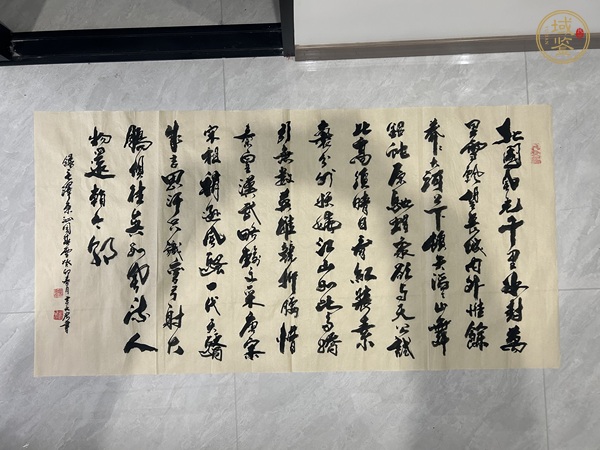 北國風光千里冰封萬
里雪飄望長城内外惟餘
莽々大河上下頓失滔々山舞
銀蛇原馳蠟象欲与天公試
比高須晴日看紅裝素
裹分外妖嬈江山如此多嬌
引無數英雄競折腰惜
秦皇漢武略輸文采唐宗
宋祖稍遜風騷一代天驕
成吉思汗只識彎弓射大
鵰俱往矣數風流人
物還看今朝
錄毛澤東沁園春雪
域鉴